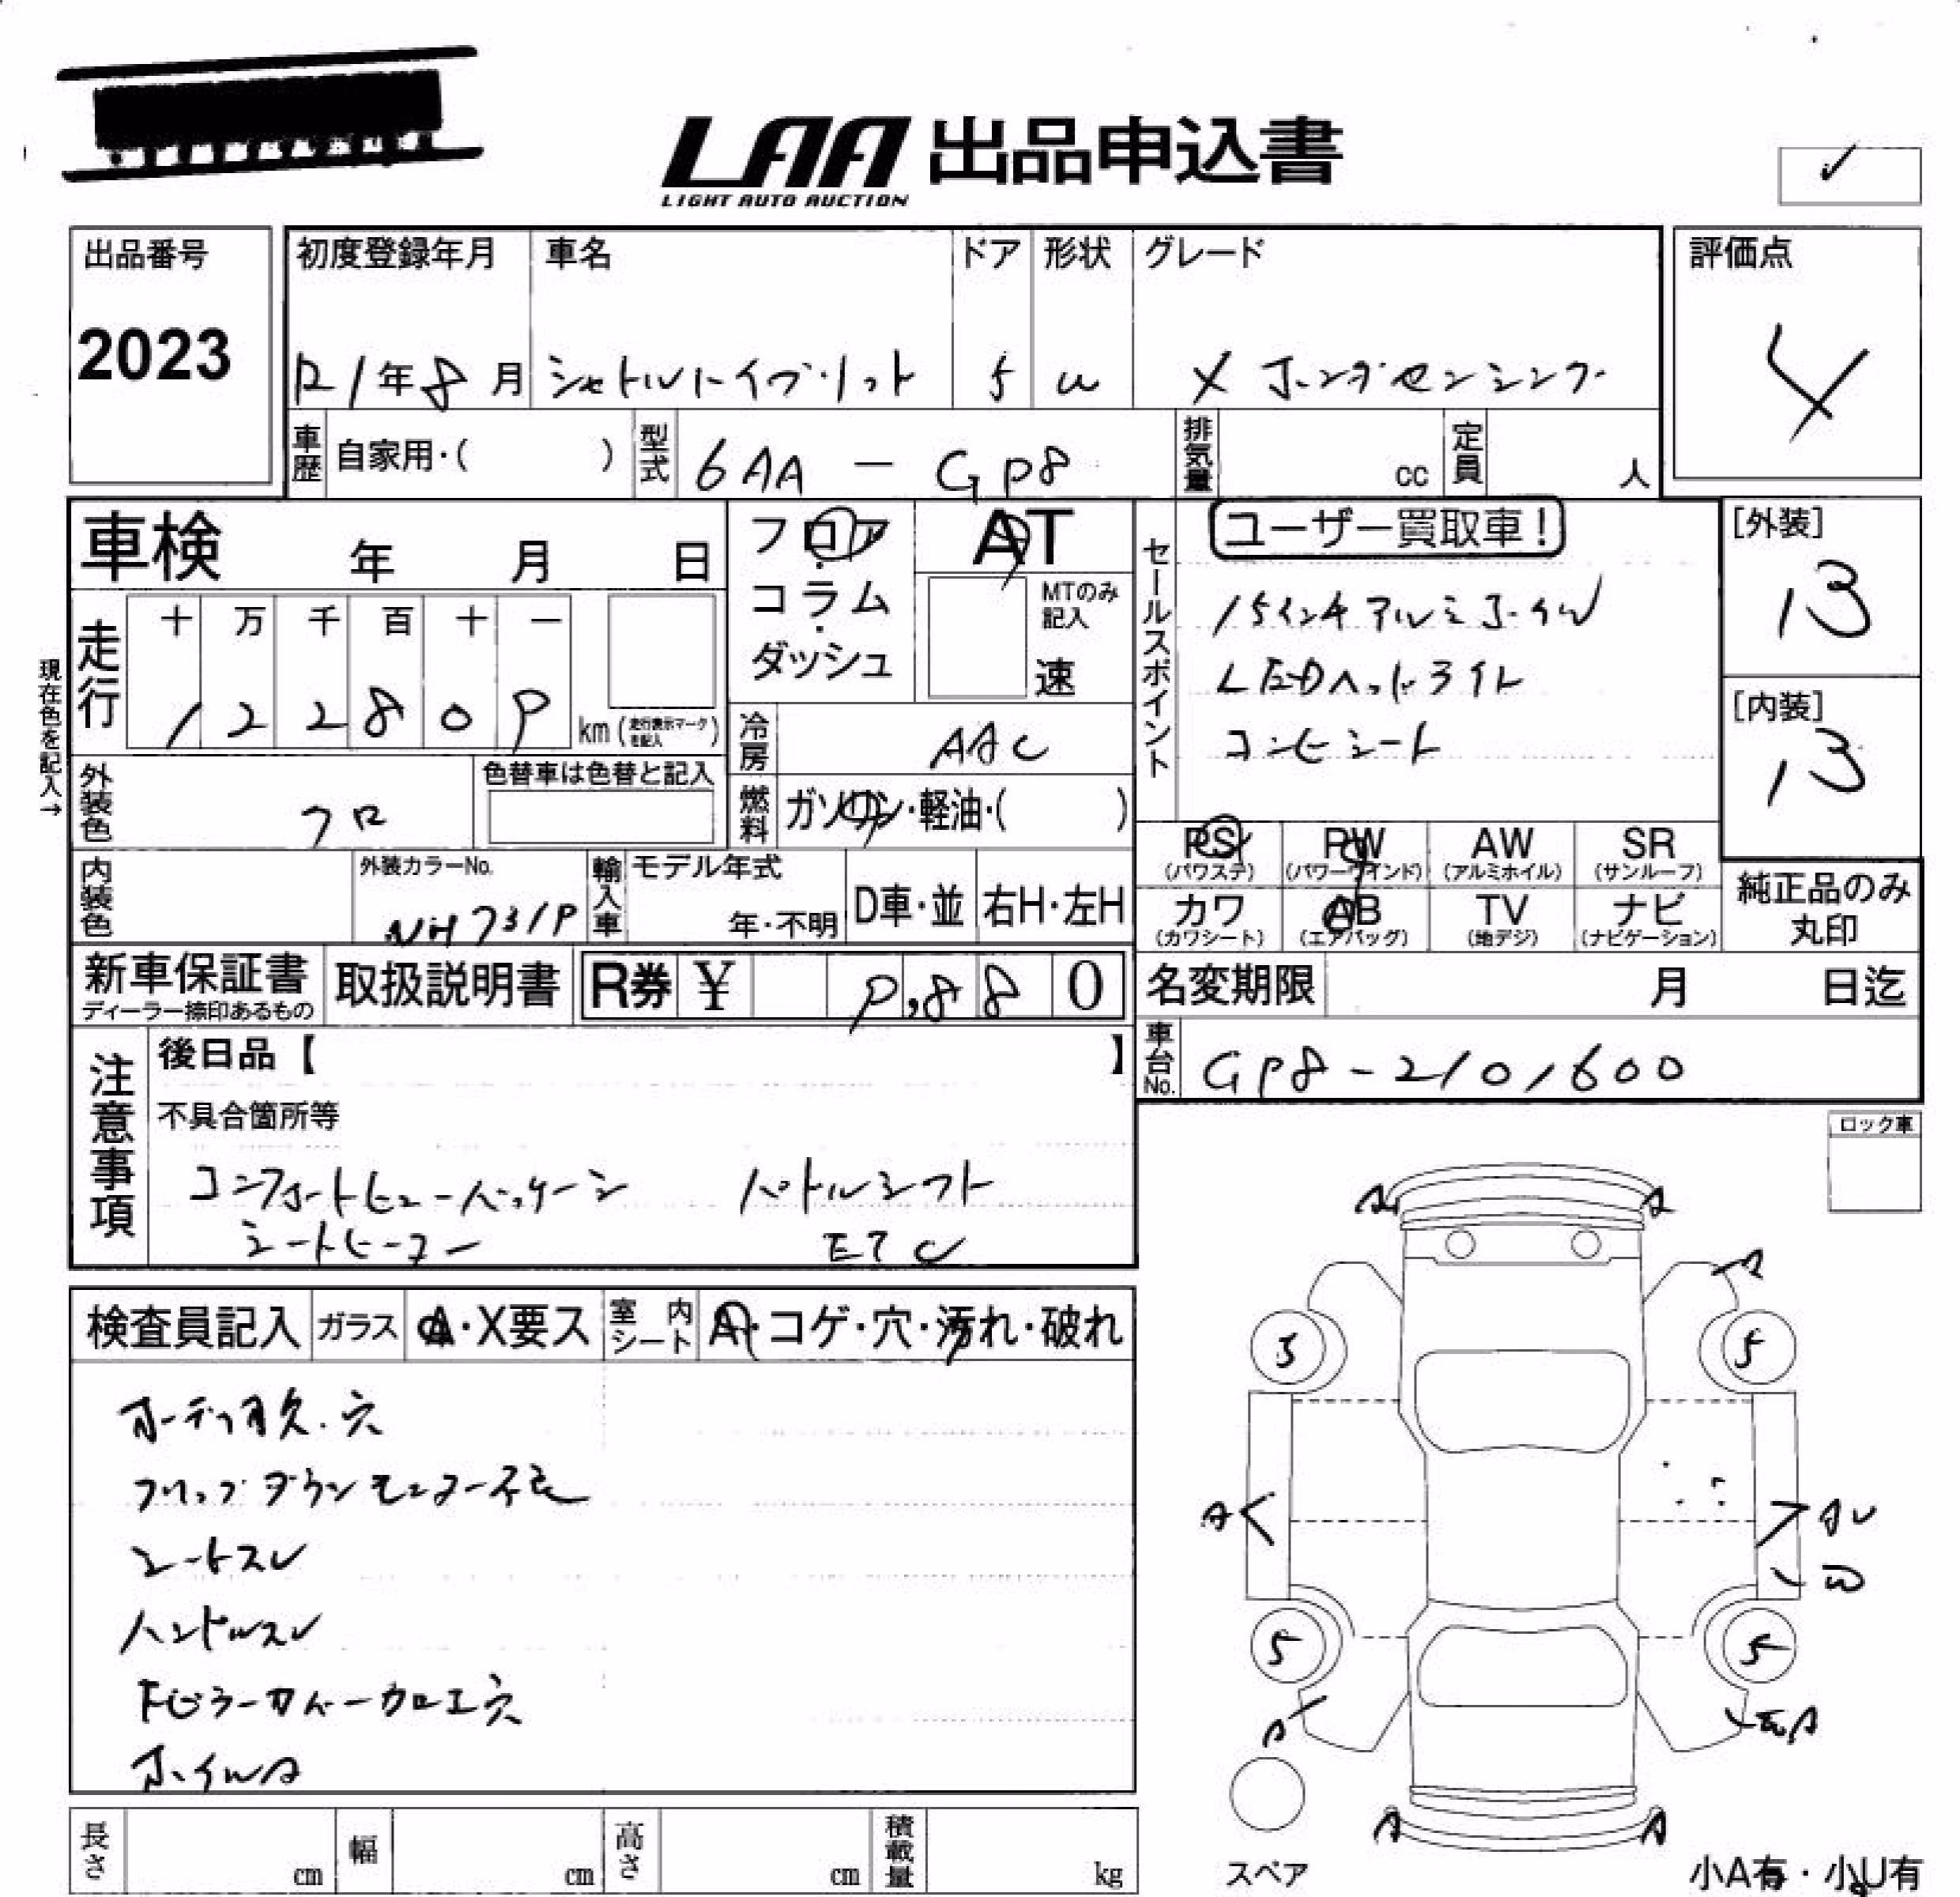 LAA 出品申込書
LIGHT AUTO AUCTION
出品番号 初度登録年月 車名 ドア 形状 グレード 評価点
2023 R1年8月 シャトルハイブリット 5 W X ホンダセンシング 4
車歴 自家用・( ) 型式 6AA - GP8 排気量 cc 定員 人
車検 年 月 日
フロア
コラム
ダッシュ
AT
MTのみ記入
速
セールスポイント
ユーザー買取車!
15インチアルミホイル
LEDヘッドライト
コンビシート
[外装]
13
[内装]
13
現在色を記入→
走行 十 万 千 百 十 一
1 2 2 8 0 9 km (走行表示マークを記入)
冷房 AAC
外装色 クロ 色替車は色替と記入
燃料 ガソリン・軽油・( )
PS (パワステ) PW (パワーウインド) AW (アルミホイル) SR (サンルーフ)
カワ (カワシート) AB (エアバッグ) TV (地デジ) ナビ (ナビゲーション)
純正品のみ丸印
内装色 外装カラーNo. NH731P 輸入車 モデル年式 年・不明 D車・並 右H・左H
新車保証書 ディーラー捺印あるもの 取扱説明書 R券 ¥ 9,880
名変期限 月 日迄
車台No. GP8-2101600
注意事項
後日品【 】
不具合箇所等
コンフォートビューパッケージ パドルシフト
シートヒーター ETC
ロック車
検査員記入 ガラス A・X要ス 室内シート A・コゲ・穴・汚れ・破れ
オーディオ欠.穴
フリップダウンモニター不良
シートスレ
ハンドルスレ
ピラーカバー加工穴
ホイルA
A A
3 5
A AU
5 5
A
A A
スペア
小A有・小U有
長さ cm 幅 cm 高さ cm 積載量 kg